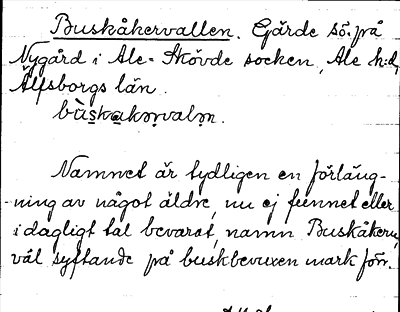 Buskåkervallen. Gärde sö. på
Nygård i Ale-Skövde socken, Ale h:d,
Älfsborgs län.
Namnet är tydligen en förläng-
ning av något äldre, nu ej funnet eller
i dagligt tal bevarat, namn Buskåkern,
väl syftande på buskbevuxen mark förr.